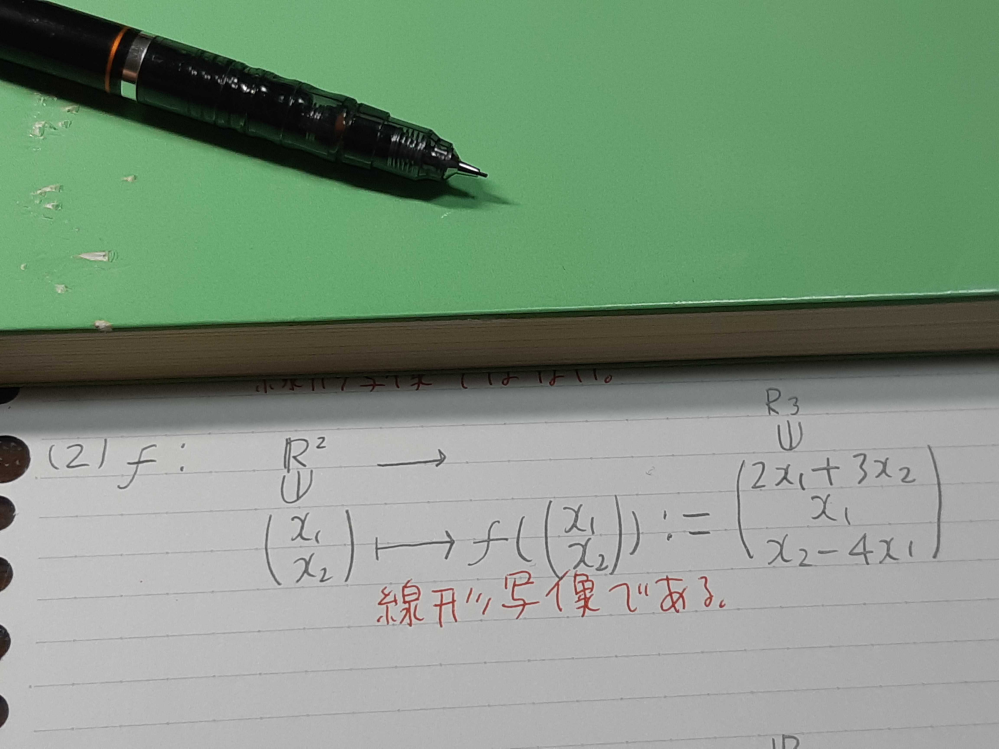 (2) f : ℝ² ⟶ R3
⋓ ⋓
(x₁ x₂) ⟼ f((x₁ x₂)) := (2x₁+3x₂ x₁ x₂-4x₁)
線形写像である。